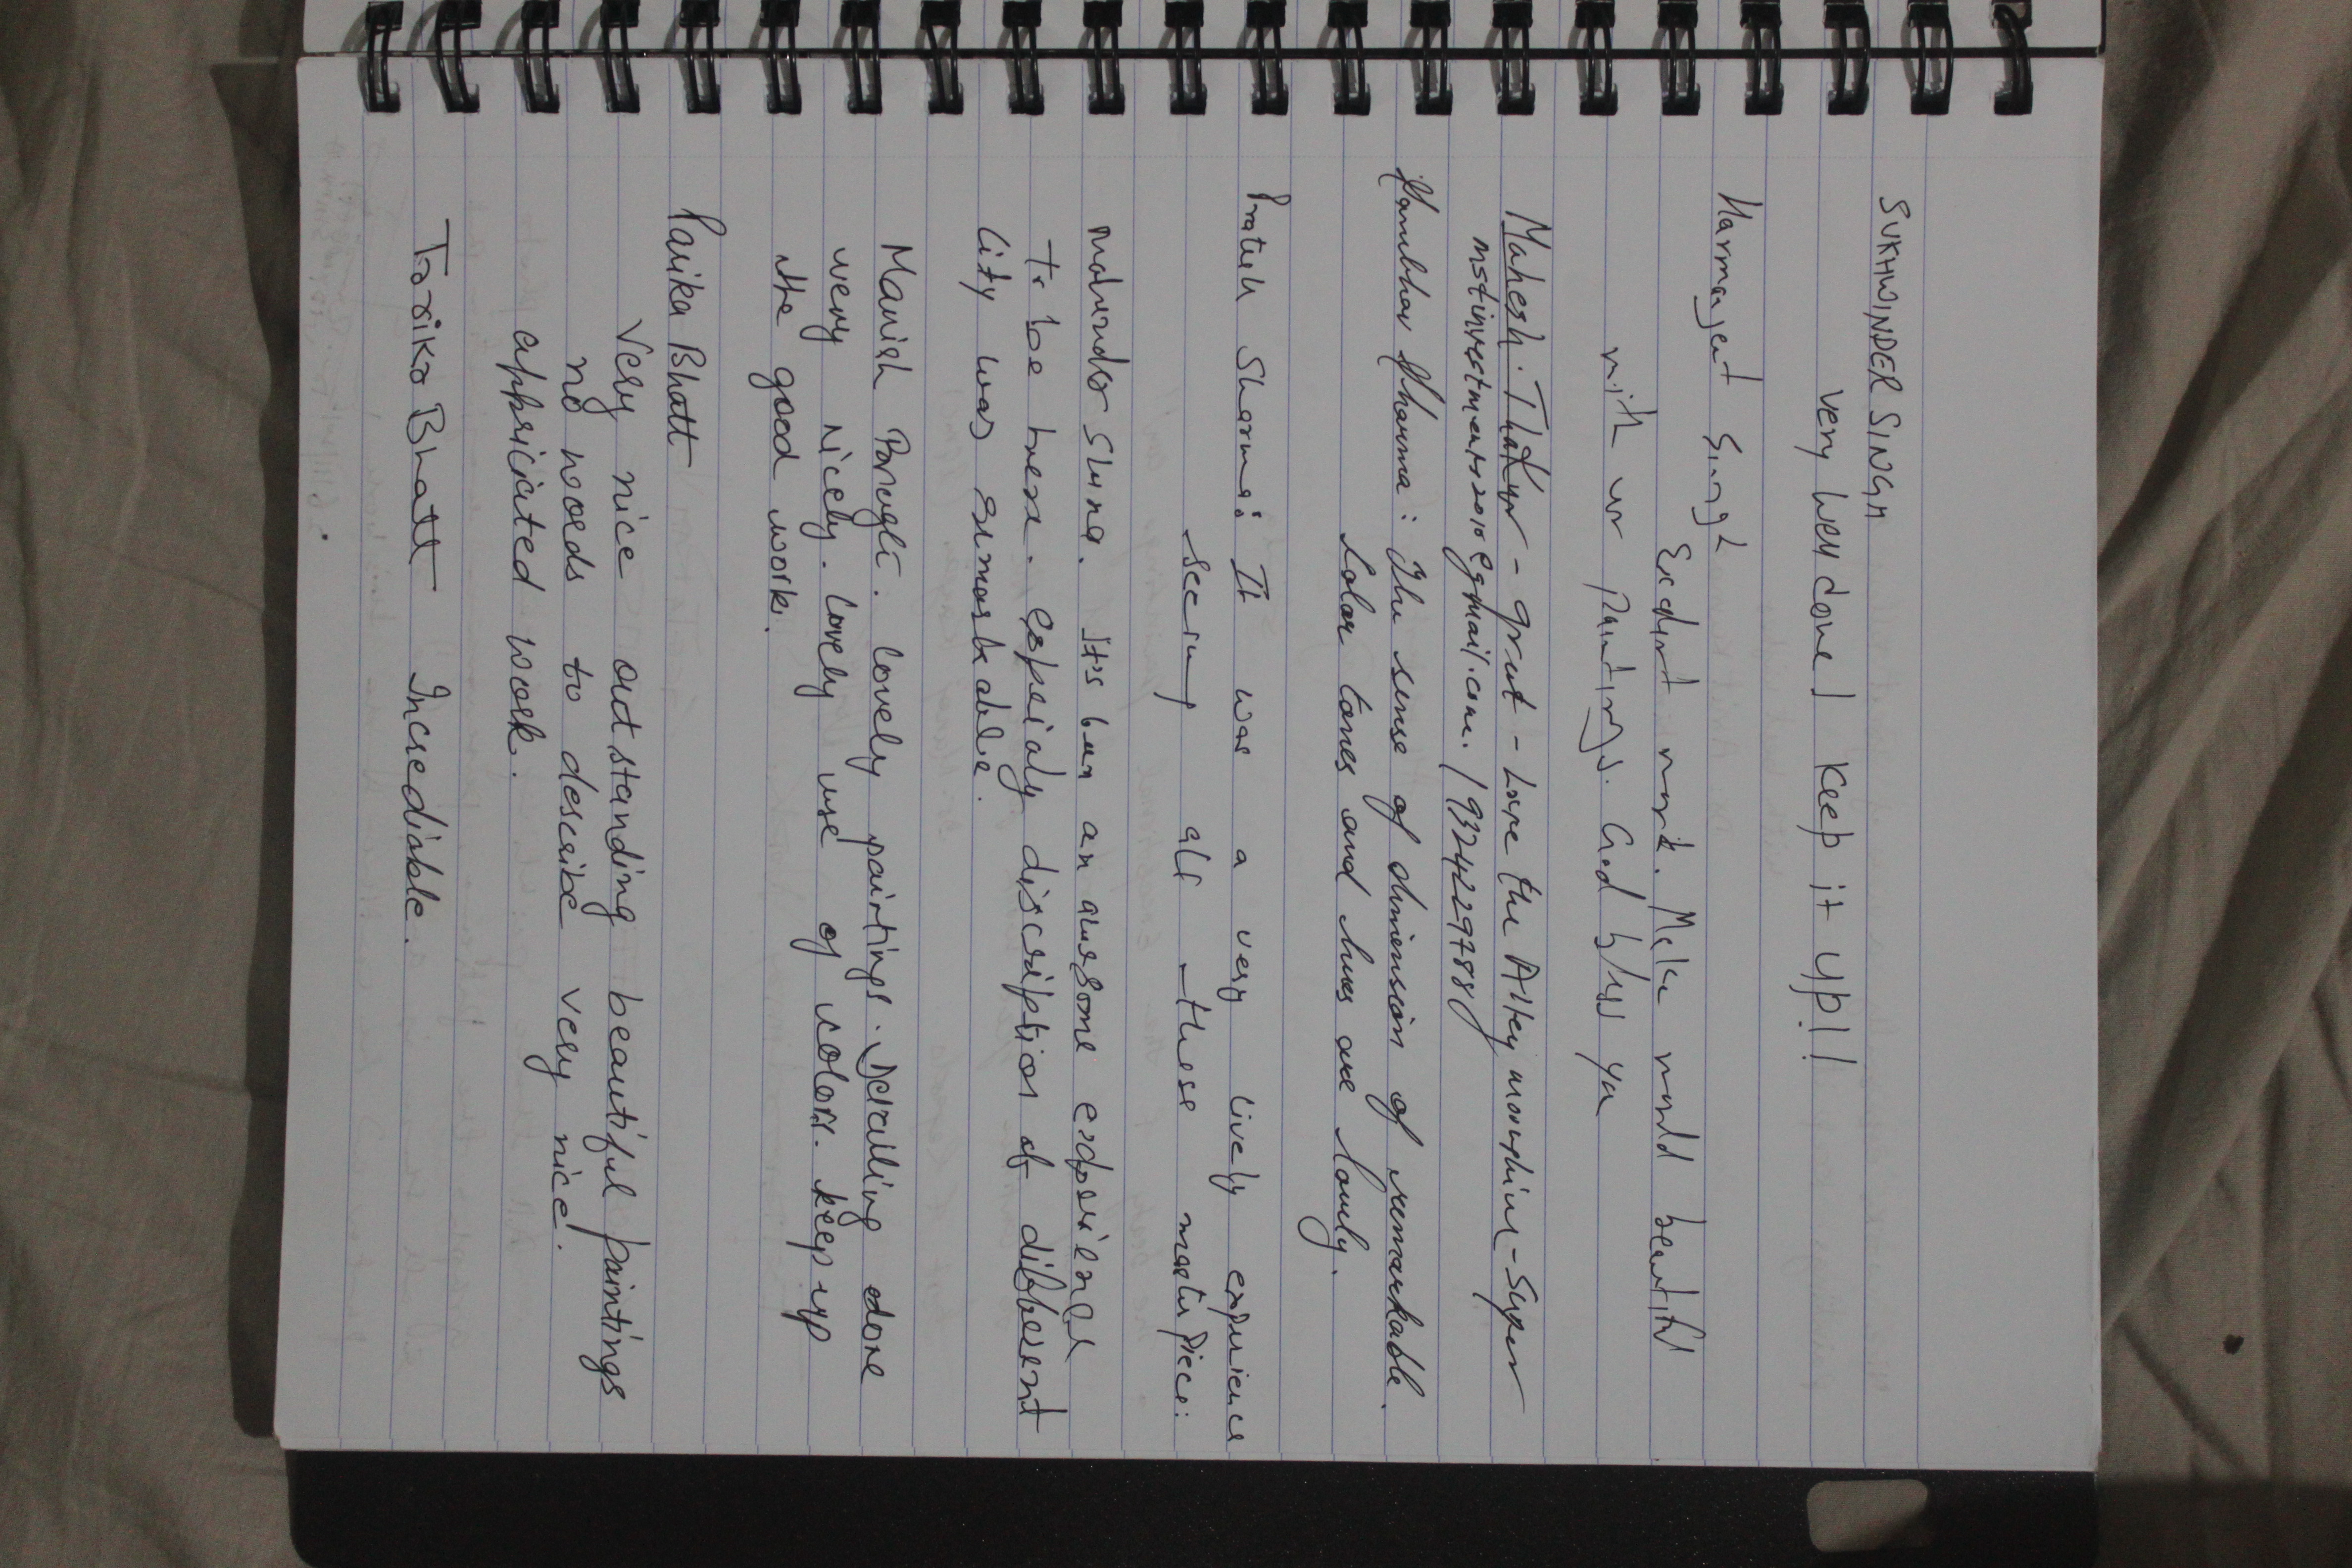 SUKHWINDER SINGH
very well done! Keep it up!!
Harmanjeet Singh
Excellent work. Make world beautiful
with ur paintings. God bless you
Mahesh. Thakur - great - Love the Alley - Super
mstinvestments2010@gmail.com. / 9324229788
Sharma: The sense of dimension of remarkable.
Color tones and hues are lovely.
Prateek Sharma: It was a very lively experience
seeing all these masterpiece:
It's been an awesome experience
To be here. espesialy discription of different
City was remarkable.
Manish . lovely paintings. Detailing done
very nicely. lovely use of colors. keep up
the good work.
Parika Bhatt
Very nice outstanding beautiful paintings
no words to describe very nice.
appriciated work.
Tarika Bhatt Incrediable.